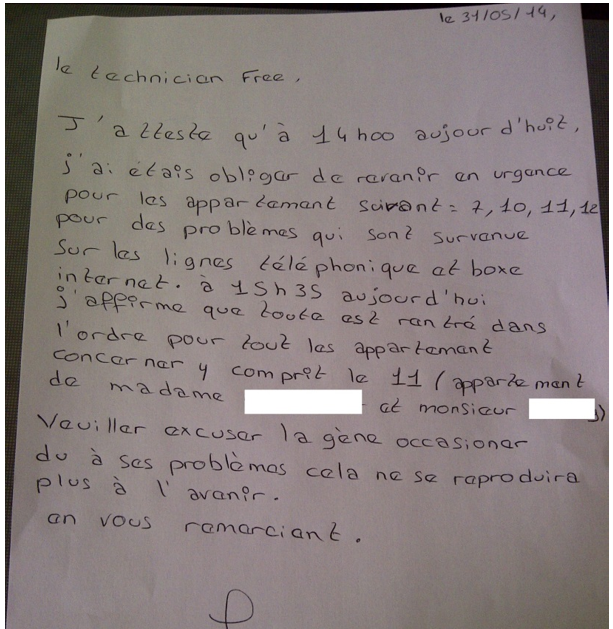 le 31/05/14,
le technicien Free,
J'atteste qu'à 14h00 aujour d'huit,
j'ai étais obliger de revenir en urgence
pour les appartement suivant = 7, 10, 11, 12
pour des problèmes qui sont survenue
Sur les lignes téléphonique et boxe
internet. à 15h35 aujourd'hui
j'affirme que toute est rentré dans
l'ordre pour tout les appartement
concerner y comprit le 11 (appartement
de madame et monsieur )
Veuiller excuser la gène occasioner
du à ses problèmes cela ne se reproduira
plus à l'avenir.
en vous remerciant.